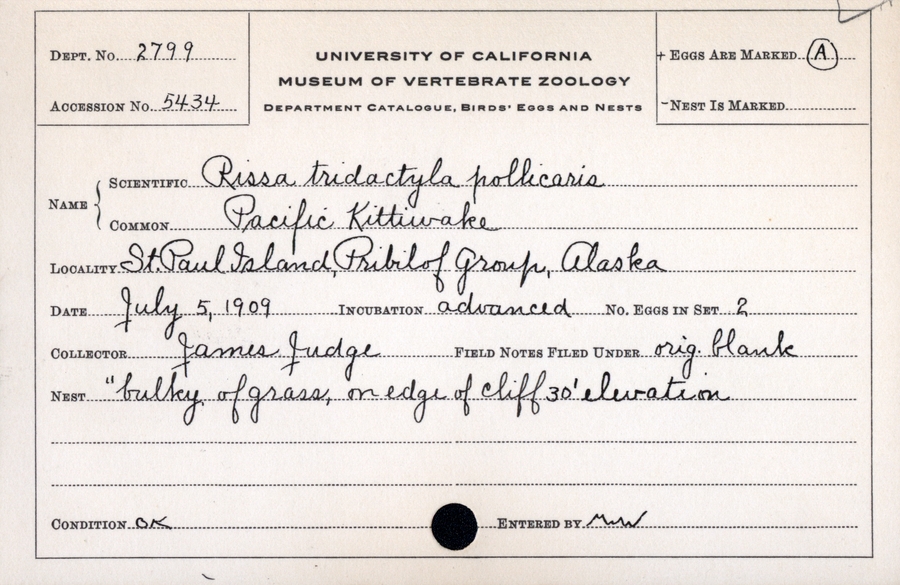 DEPT. NO. 2799
ACCESSION NO. 5434
UNIVERSITY OF CALIFORNIA
MUSEUM OF VERTEBRATE ZOOLOGY
DEPARTMENT CATALOGUE, BIRDS' EGGS AND NESTS
+ EGGS ARE MARKED A
-NEST IS MARKED
NAME { SCIENTIFIC Rissa tridactyla pollicaris
COMMON Pacific Kittiwake
LOCALITY St. Paul Island, Pribilof Group, Alaska
DATE July 5, 1909 INCUBATION advanced NO. EGGS IN SET 2
COLLECTOR James Judge FIELD NOTES FILED UNDER orig. blank
NEST "bulky, of grass, on edge of cliff 30' elevation
CONDITION OK ENTERED BY